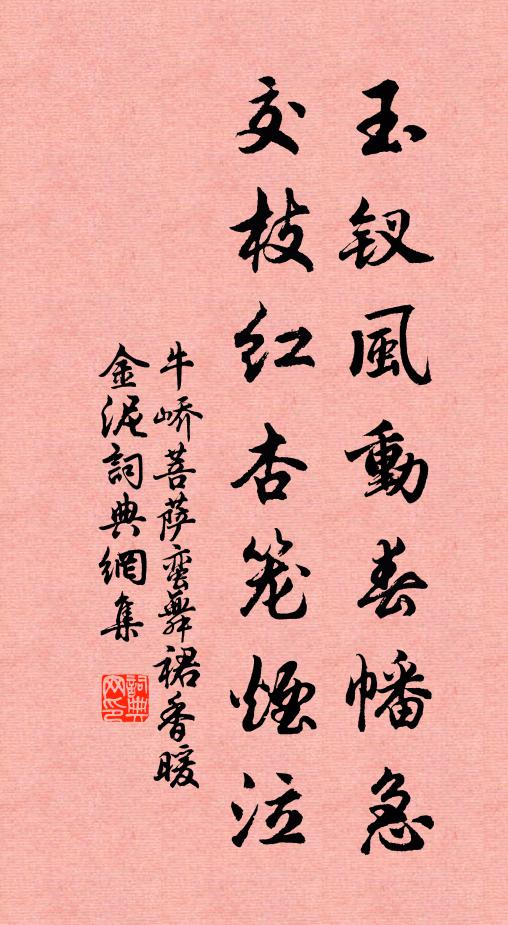 玉钗風動春幡急
交枝紅杏笼煙泣
牛嶠菩萨蛮舞裙香暖
金泥詞典網集
詞典
网印